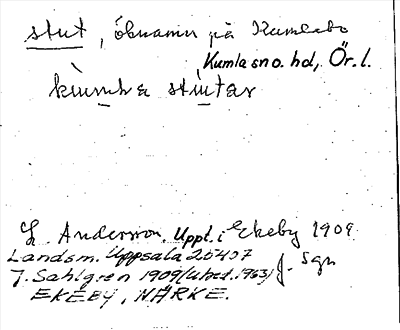 stut, öbnamn på Kumlabo
Kumla sn o. hd, Ör. l.
kumla stutar
L. Andersson. Uppt. i Ekeby 1909
Landsm. Uppsala 25407 J. Sgn
J. Sahlgren 1909 (utbet. 1963)
EKEBY, NÄRKE.